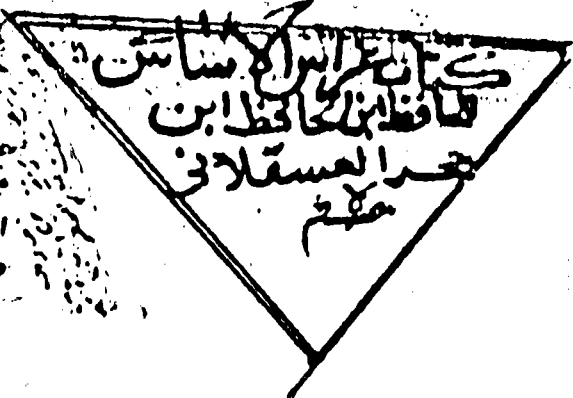 كتاب غراس الاساس
للحافظ ابن الحافظ ابن
حجر العسقلانى